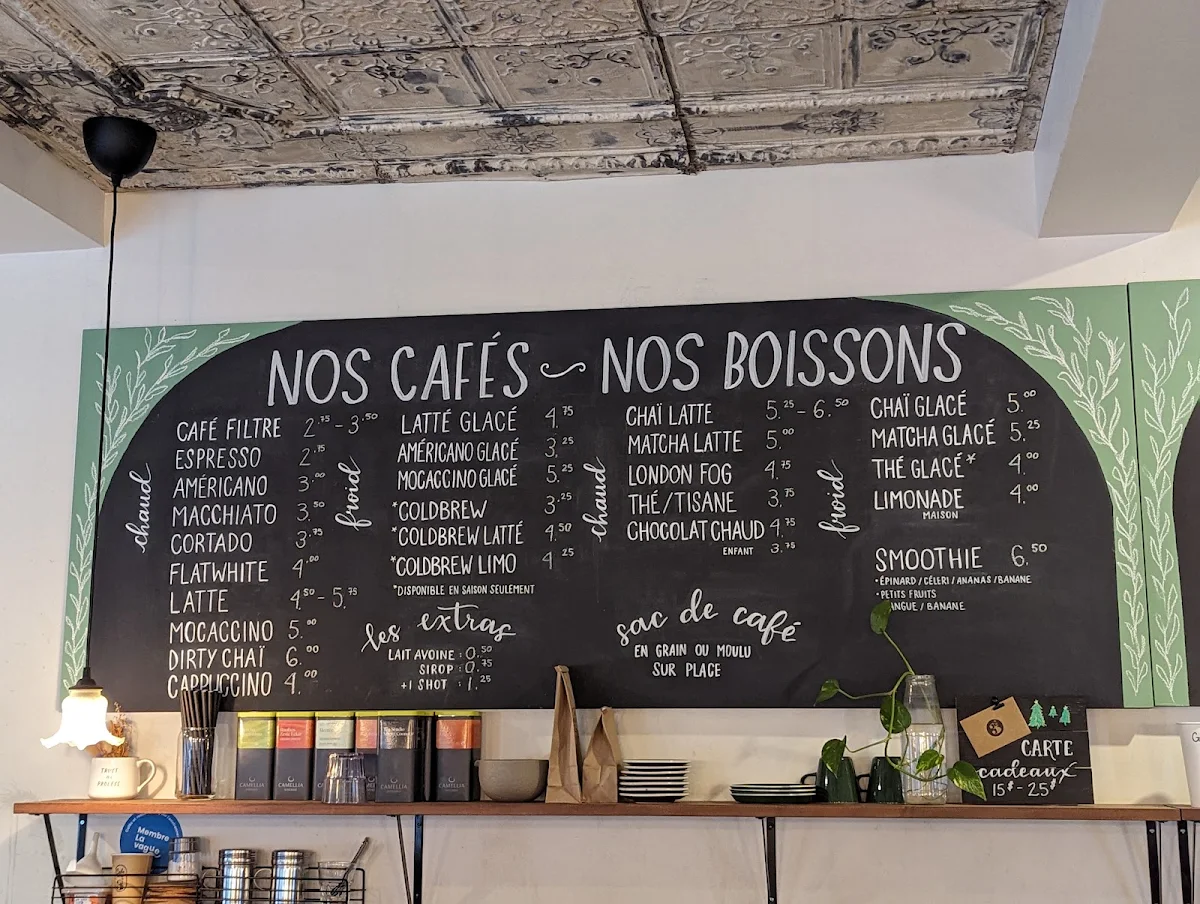 NOS CAFÉS ~ NOS BOISSONS
chaud
CAFÉ FILTRE 2.75 - 3.50
ESPRESSO 2.75
AMÉRICANO 3.00
MACCHIATO 3.50
CORTADO 3.75
FLATWHITE 4.00
LATTE 4.50 - 5.75
MOCACCINO 5.00
DIRTY CHAÏ 6.00
CAPPUCCINO 4.00
froid
LATTÉ GLACÉ 4.75
AMÉRICANO GLACÉ 3.25
MOCACCINO GLACÉ 5.25
*COLDBREW 3.25
*COLDBREW LATTÉ 4.50
*COLDBREW LIMO 4.25
*DISPONIBLE EN SAISON SEULEMENT
les extras
LAIT AVOINE : 0.50
SIROP : 0.75
+1 SHOT : 1.25
chaud
CHAÏ LATTE 5.25 - 6.50
MATCHA LATTE 5.00
LONDON FOG 4.75
THÉ/TISANE 3.75
CHOCOLAT CHAUD 4.75
ENFANT 3.75
sac de café
EN GRAIN OU MOULU
SUR PLACE
froid
CHAÏ GLACÉ 5.00
MATCHA GLACÉ 5.25
THÉ GLACÉ* 4.00
LIMONADE 4.00
MAISON
SMOOTHIE 6.50
•ÉPINARD / CÉLERI / ANANAS / BANANE
•PETITS FRUITS
ANGUE / BANANE
CARTE
cadeaux
15$ - 25$
CAMELLIA
CAMELLIA
CAMELLIA
CAMELLIA
Membre
La
vague